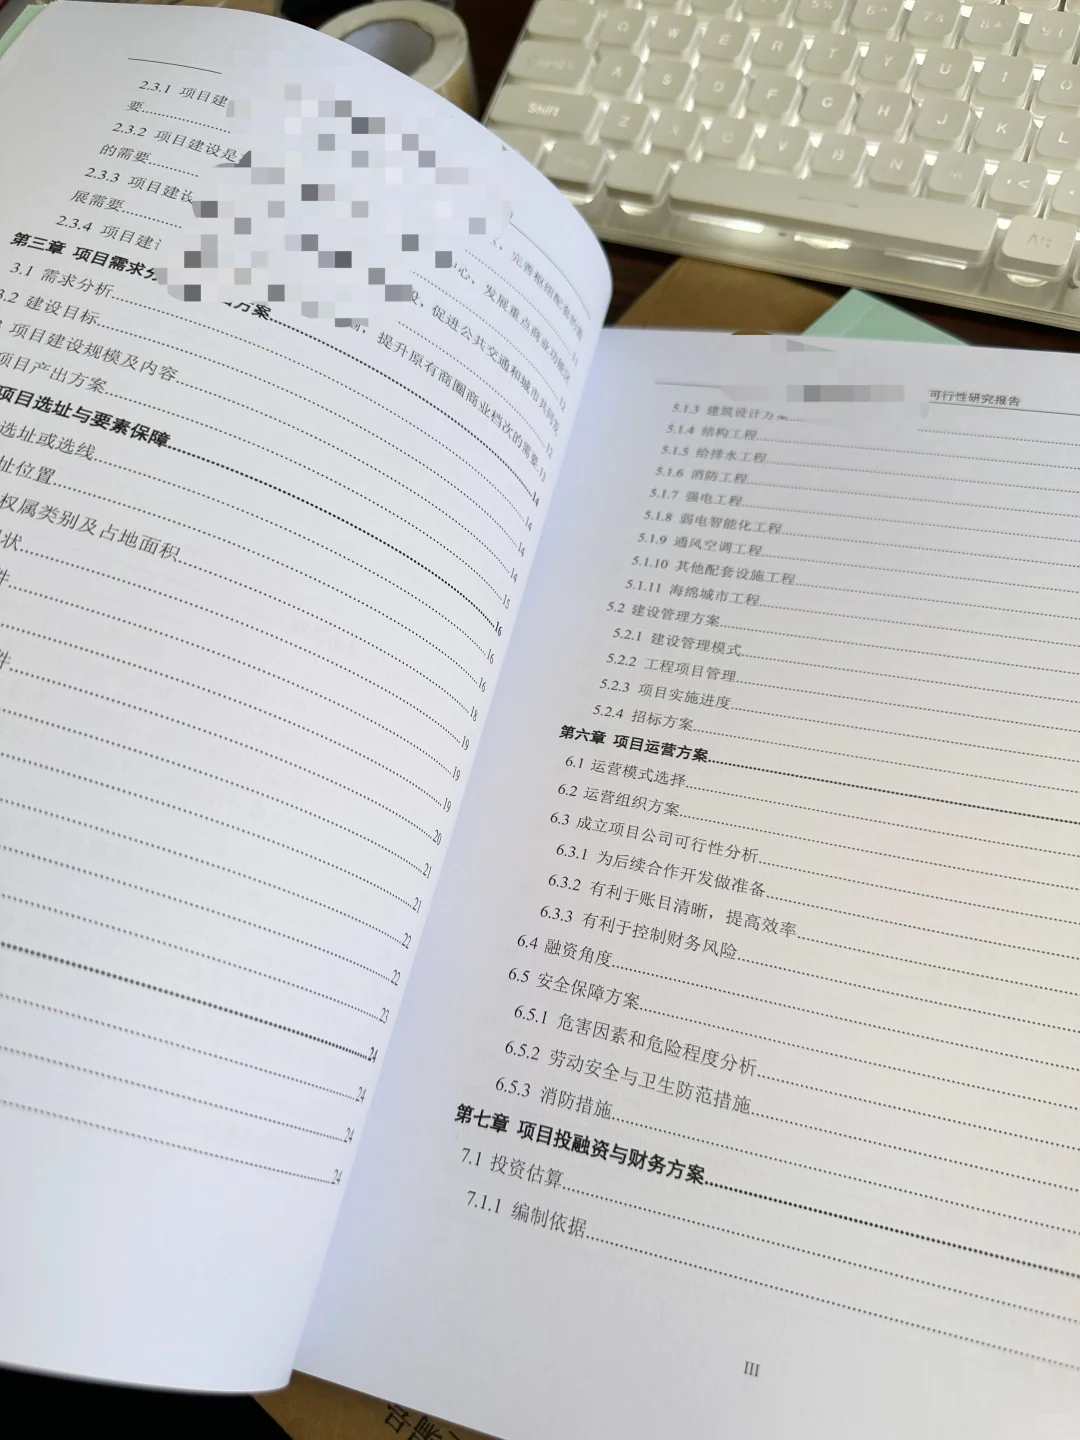 2.3.1 项目建
要
2.3.2 项目建设是
的需要
2.3.3 项目建设
展需要
2.3.4 项目建
完善枢纽配套的需
心，发展重点商业功能区
设，促进公共交通和城市共同发
提升原有商圈商业档次的需要 13
11
12
12
第三章 项目需求分 出方案 14
3.1 需求分析 14
3.2 建设目标 14
项目建设规模及内容 14
项目产出方案 15
项目选址与要素保障 16
选址或选线 16
址位置 16
权属类别及占地面积 18
状 19
件 19
19
20
件 21
21
22
22
23
24
24
24
24
可行性研究报告
5.1.3 建筑设计方案
5.1.4 结构工程
5.1.5 给排水工程
5.1.6 消防工程
5.1.7 强电工程
5.1.8 弱电智能化工程
5.1.9 通风空调工程
5.1.10 其他配套设施工程
5.1.11 海绵城市工程
5.2 建设管理方案
5.2.1 建设管理模式
5.2.2 工程项目管理
5.2.3 项目实施进度
5.2.4 招标方案
第六章 项目运营方案
6.1 运营模式选择
6.2 运营组织方案
6.3 成立项目公司可行性分析
6.3.1 为后续合作开发做准备
6.3.2 有利于账目清晰，提高效率
6.3.3 有利于控制财务风险
6.4 融资角度
6.5 安全保障方案
6.5.1 危害因素和危险程度分析
6.5.2 劳动安全与卫生防范措施
6.5.3 消防措施
第七章 项目投融资与财务方案
7.1 投资估算
7.1.1 编制依据
III
Shift
Q W E R T Y U I O
A S D F G H J K L
Z C V B N
Alt